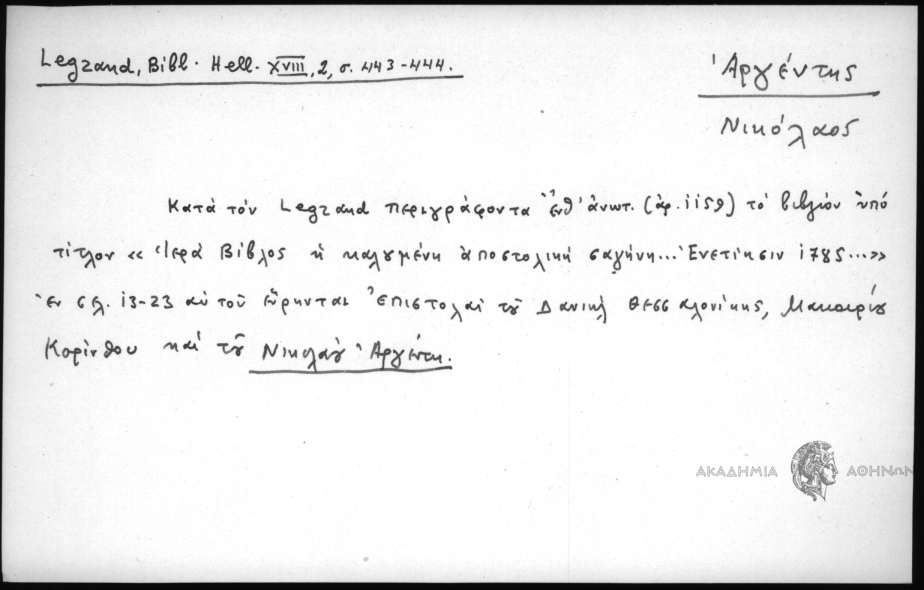 Legrand, Bibl. Hell. XVIII, 2, σ. 443-444.
Ἀργέντης
Νικόλαος
Κατά τόν Legrand περιγράφοντα ἔνθ' ἀνωτ. (ἀρ. 1159) τό βιβλίον ὑπό
τίτλον « Ἱερά Βίβλος ἡ καλουμένη ἀποστολική σαγήνη... Ἐνετίησιν 1785...»
ἐν σελ. 13-23 αὐτοῦ εὕρηνται ἐπιστολαί τοῦ Δανιήλ Θεσσαλονίκης, Μακαρίου
Κορίνθου καί τοῦ Νικολάου Ἀργέντη.
ΑΚΑΔΗΜΙΑ ΑΘΗΝΩΝ